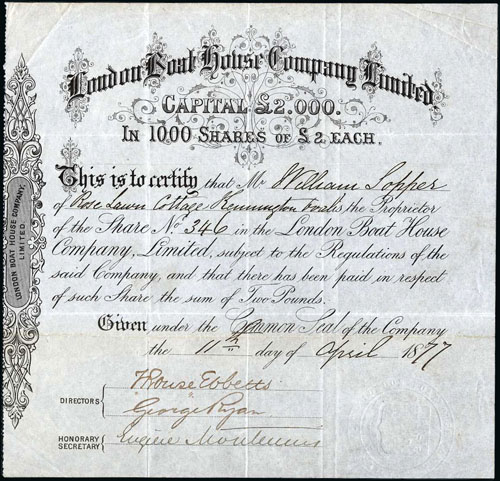 London Boat House Company Limited
CAPITAL £2.000.
IN 1000 SHARES OF £2 EACH.
This is to certify that Mr William Sopper
of Rose Lawn Cottage Kennington is the Proprietor
of the Share No. 346 in the London Boat House
Company, Limited, subject to the Regulations of the
said Company, and that there has been paid in respect
of such Share the sum of Two Pounds.
Given under the Common Seal of the Company
the 11th day of April 1877
DIRECTORS
George Ryan
HONORARY
SECRETARY
Eugène
LONDON BOAT HOUSE COMPANY,
LIMITED.